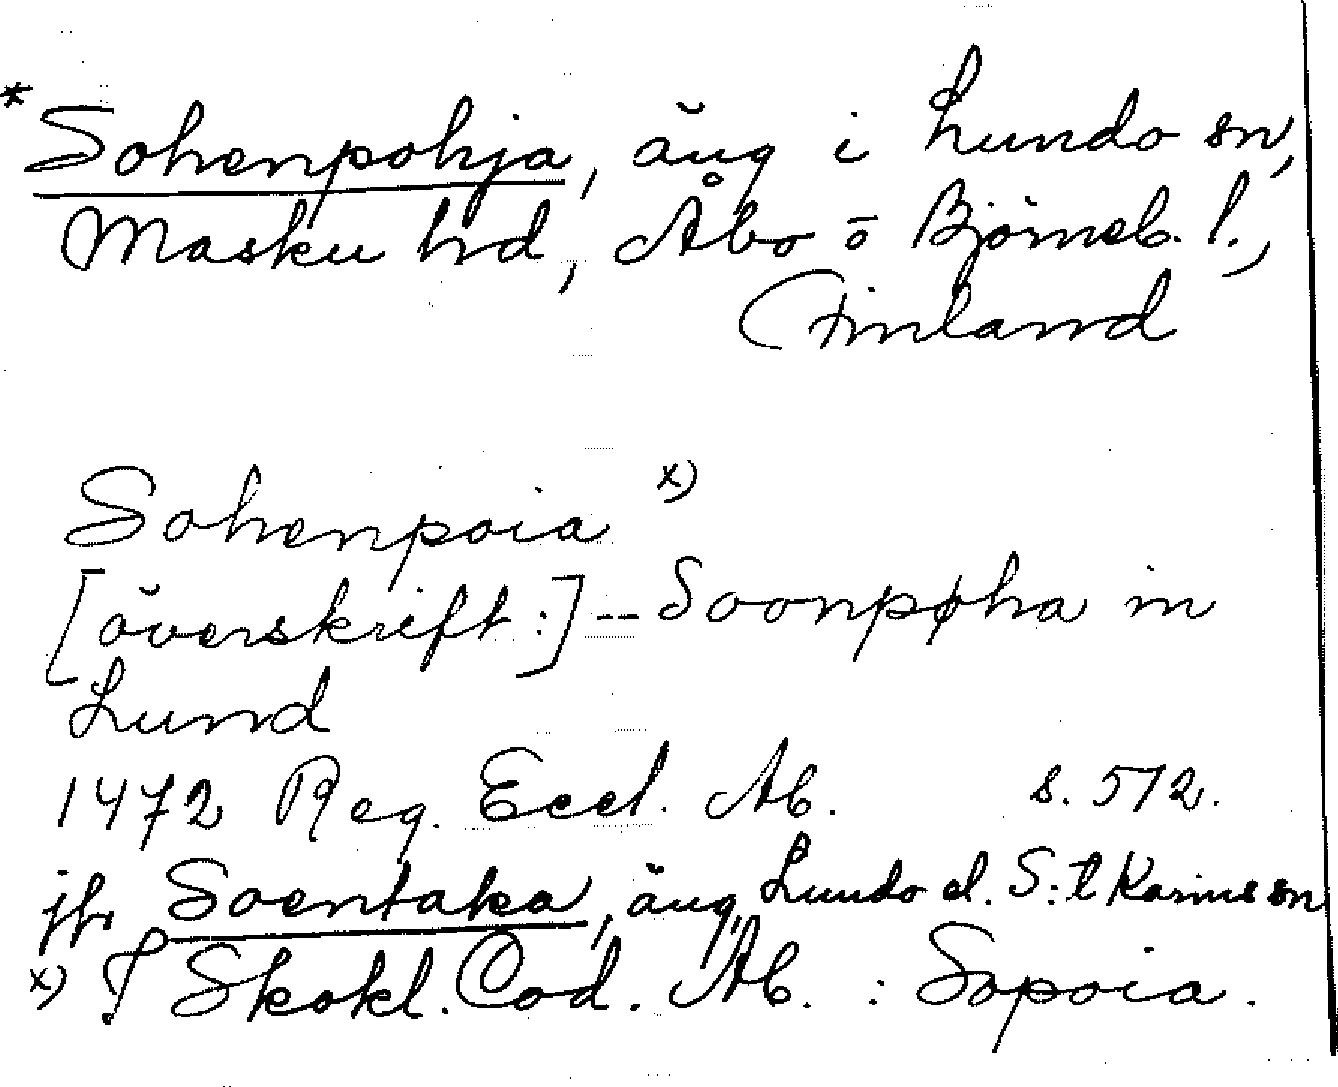 * Sohenpohja, äng i Lundo sn,
Masku hd, Åbo o Björneb. l.,
Finland
Sohenpoia x)
[överskrift:] -- Soonpoha in
Lund
1472 Reg. Eccl. Ab. s. 512.
jfr Soentaka, äng, Lundo el. S:t Karins sn
x) I Skokl. Cod. Ab. : Sopoia.